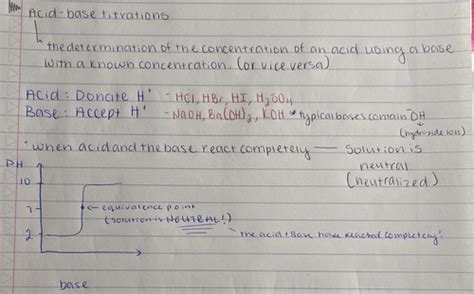 Acid-base titrations
the determination of the concentration of an acid using a base
with a known concentration. (or vice versa)
Acid: Donate H⁺ - HCl, HBr, HI, H₂SO₄
Base: Accept H⁺ - NaOH, Ba(OH)₂, KOH * typical bases contain ⁻OH
(hydroxide ion)
when acid and the base react completely — solution is
neutral
(neutralized)
PH
10
7
2
equivalence point
(solution is NEUTRAL!)
the acid + Base have reacted completely!
base